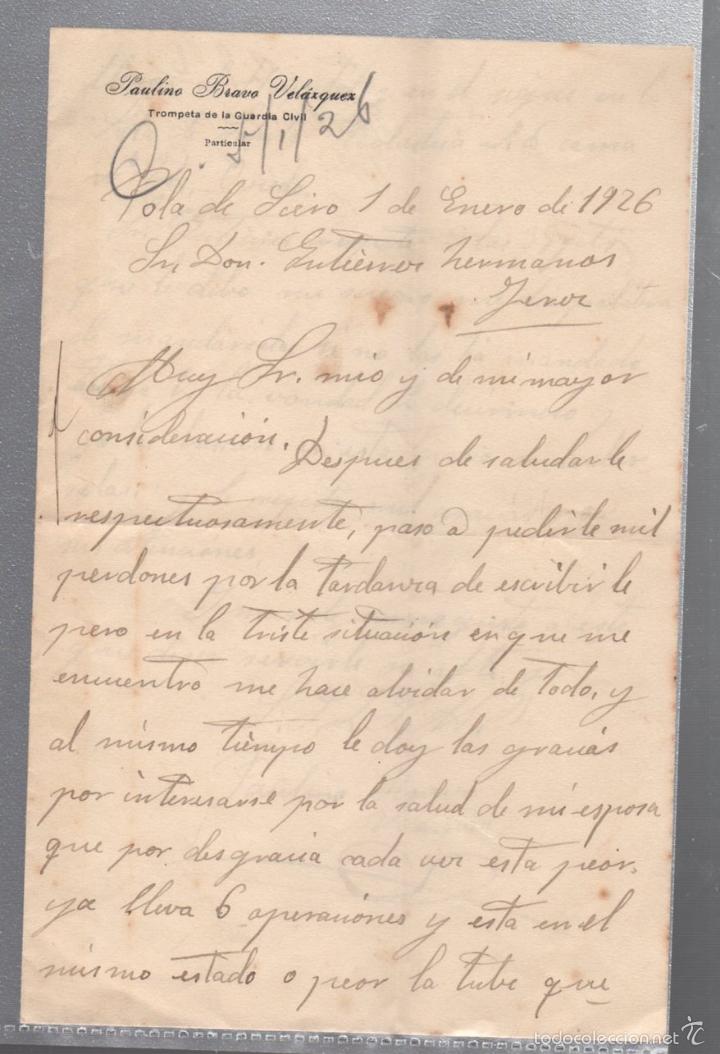 Paulino Bravo Velázquez
Trompeta de la Guardia Civil
Particular
5/1/26
Pola de Siero 1 de Enero de 1926
Sr. Don. Gutierrez hermanos
Jerez
Muy Sr. mio y de mi mayor
consideración. Despues de saludarle
respectuosamente, paso a pedirle mil
perdones por la tardanza de escribirle
pero en la triste situación en que me
encuentro me hace olvidar de todo, y
al mismo tiempo le doy las gracias
por interesarse por la salud de mi esposa
que por desgracia cada vez esta peor,
ya lleva 6 operaciónes y esta en el
mismo estado o peor la tube que
todocoleccion.net